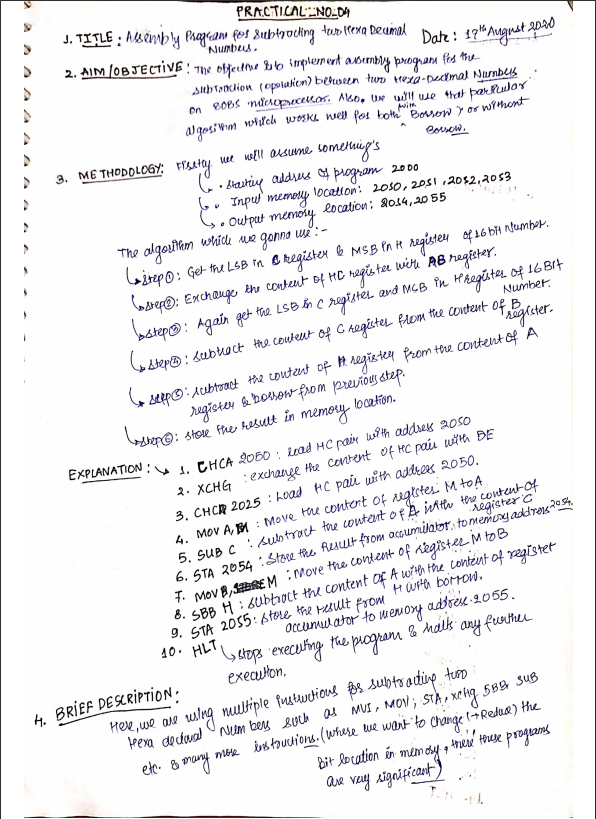 PRACTICAL-NO-04
1. TITLE: Assembly Program for Subtracting two Hexa Decimal
Numbers.
Date: 19th August 2020
2. AIM/OBJECTIVE: The objective is to implement assembly program for the
subtraction (operation) between two Hexa-Decimal Numbers
on 8085 microprocessor. Also, we will use that particular
algorithm which works well for both with Borrow & or without
Borrow.
3. METHODOLOGY: Firstly we will assume something's
• Starting address of program 2000
• Input memory location: 2050, 2051, 2052, 2053
• Output memory location: 2054, 2055
The algorithm which we gonna use:-
Step①: Get the LSB in C register & MSB in H register of 16 bit Number.
Step②: Exchange the content of HC register with AB register.
Step③: Again get the LSB in C register and MSB in H register of 16 Bit
Number.
Step④: Subtract the content of C register from the content of B
register.
Step⑤: Subtract the content of H register from the content of A
register & borrow from previous step.
Step⑥: Store the result in memory location.
EXPLANATION:
1. CHCA 2050: Load HC pair with address 2050
2. XCHG : exchange the content of HC pair with DE
3. CHCR 2025: Load HC pair with address 2050.
4. MOV A, M: Move the content of register M to A
5. SUB C : Subtract the content of A with the content of
register C
6. STA 2054: Store the Result from accumulator to memory address 2054.
7. MOV B, M: Move the content of register M to B
8. SBB H: Subtract the content of A with the content of register
H with borrow.
9. STA 2055: Store the result from
accumulator to memory address 2055.
10. HLT
stops executing the program & halts any further
execution.
4. BRIEF DESCRIPTION:
Here, we are using multiple instructions for subtracting two
Hexa decimal Numbers such as MVI, MOV, STA, XCHG SBB, SUB
etc. & many more instructions. (where we want to change (→ Reduce) the
bit location in memory, there these programs
are very significant)